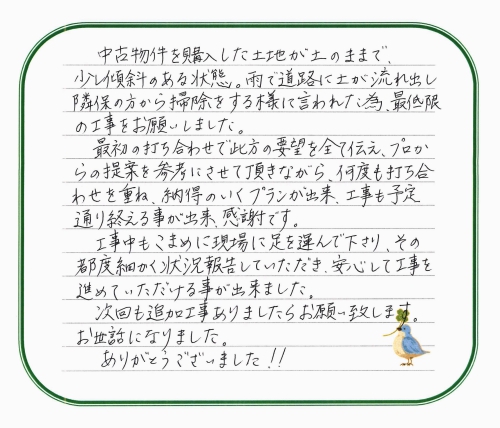 中古物件を購入した土地が土のままで、
少し傾斜のある状態。雨で道路に土が流れ出し
隣保の方から掃除をする様に言われた為、最低限
の工事をお願いしました。
最初の打ち合わせで此方の要望を全て伝え、プロか
らの提案を参考にさせて頂きながら、何度も打ち合
わせを重ね、納得のいくプランが出来、工事も予定
通り終える事が出来、感謝です。
工事中もこまめに現場に足を運んで下さり、その
都度細かく状況報告していただき、安心して工事を
進めていただける事が出来ました。
次回も追加工事ありましたらお願い致します。
お世話になりました。
ありがとうございました!!